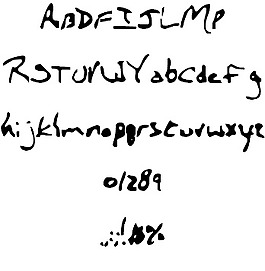 ABDFIJLMP
RSTUVWYabcdefg
hijklmnopqrstuvwxyz
01289
.,:;!$%